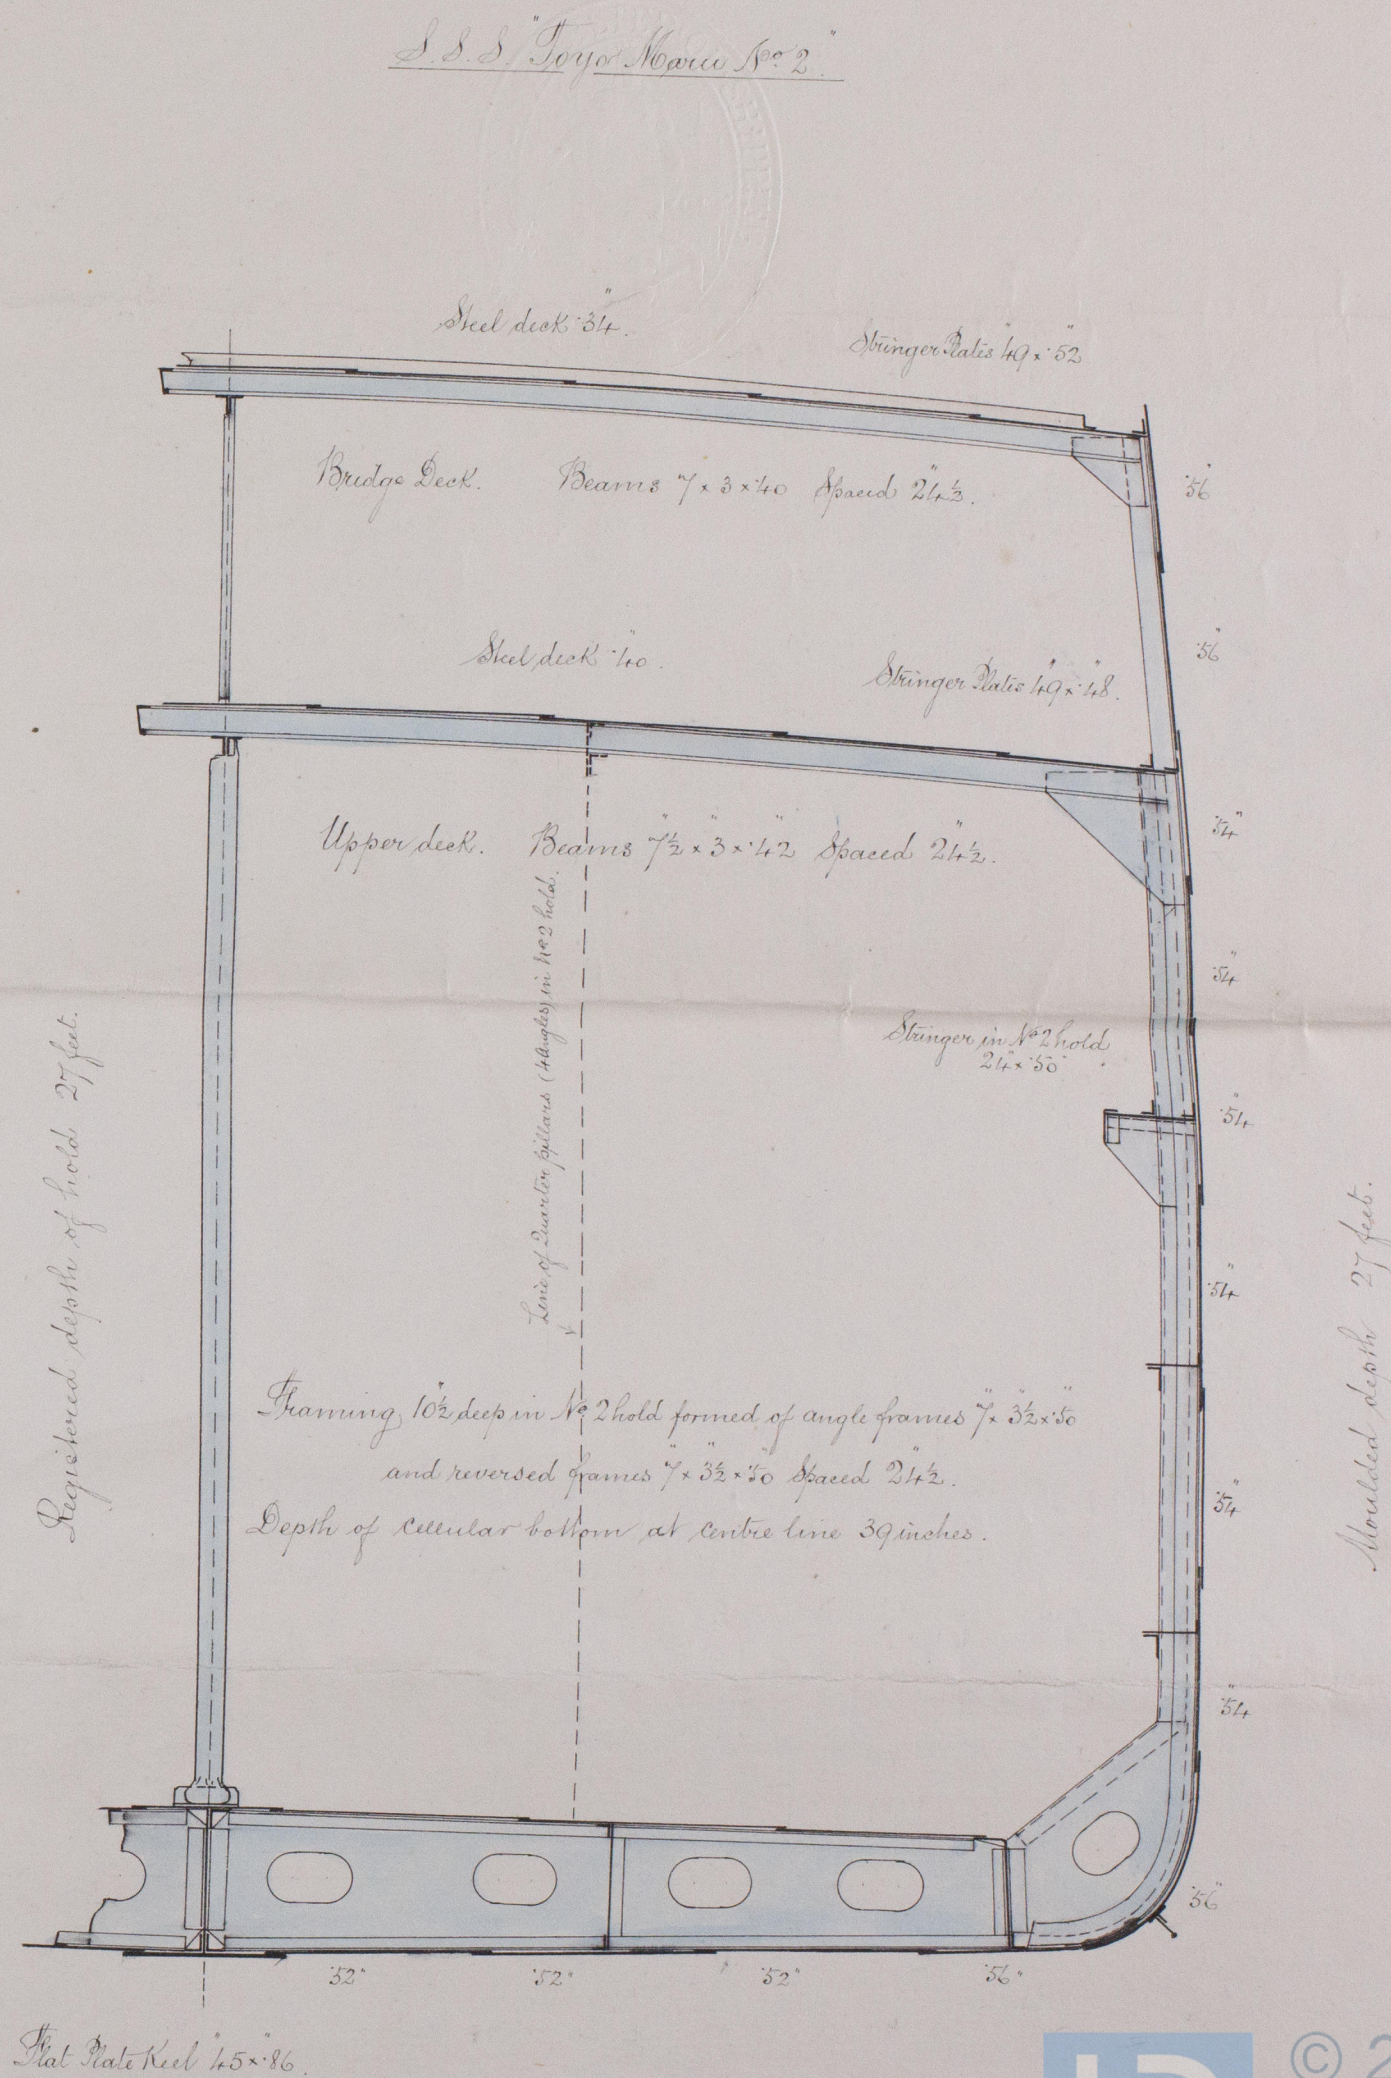 S.S.S "Toyo Maru No. 2"
Steel deck .34".
Stringer Plates 49" x .52"
Bridge Deck. Beams 7 x 3 x .40 Spaced 24½".
.56"
.56"
Steel deck .40".
Stringer Plates 49" x .48".
Upper deck. Beams 7½" x 3" x .42" Spaced 24½".
.54"
.54"
Line of Quarter pillars (4 angles) in No 2 hold.
Stringer in No 2 hold
24" x .50"
.54"
.54"
Registered depth of hold 27 feet.
Moulded depth 27 feet.
Framing 10½" deep in No. 2 hold formed of angle frames 7" x 3½" x .50"
and reversed frames 7" x 3½" x .50 Spaced 24½".
.54"
Depth of cellular bottom at centre line 39 inches.
.54"
.56"
.52" .52" .52" .56"
Flat Plate Keel 45" x .86".
© 2